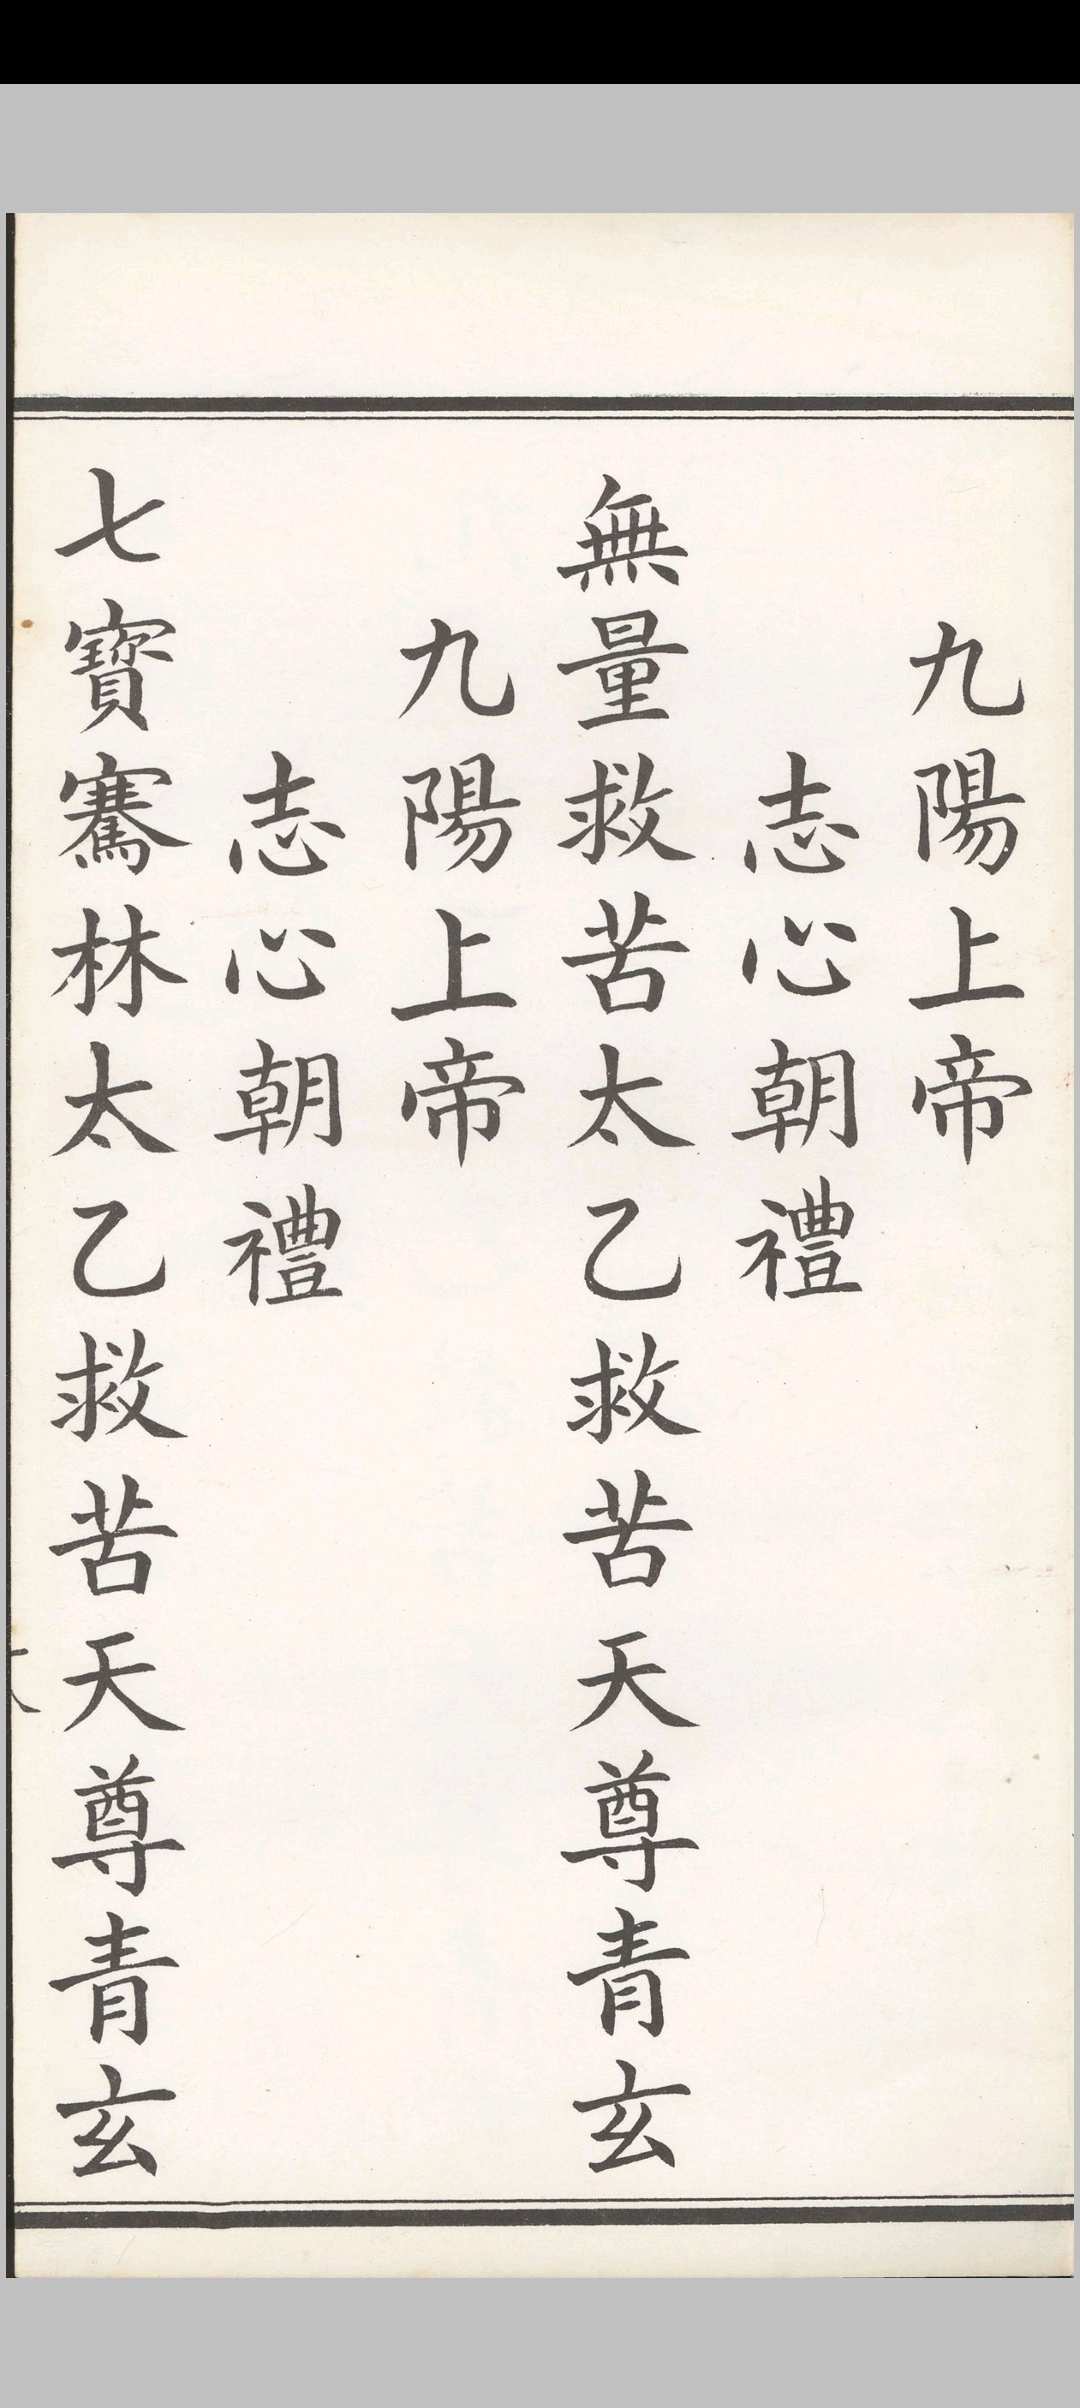 九陽上帝
志心朝禮
無量救苦太乙救苦天尊青玄
九陽上帝
志心朝禮
七寶騫林太乙救苦天尊青玄